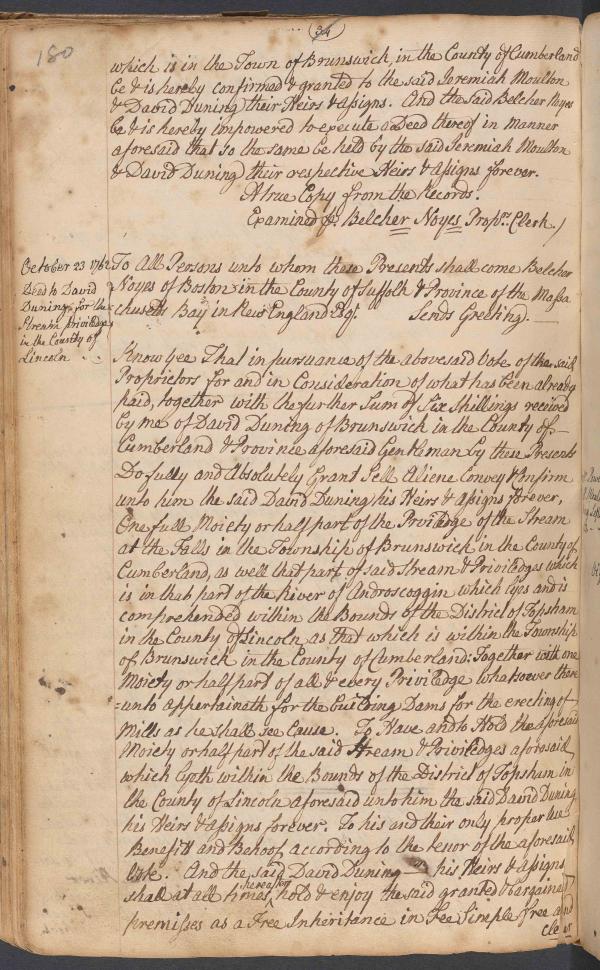 34
180
which is in the Town of Brunswick, in the County of Cumberland
be & is hereby confirmed & granted to the said Jeremiah Moulton
& David Duning their Heirs & assigns. And the said Belcher Noyes
be & is hereby impowered to execute a Deed thereof in manner
aforesaid that so the same be held by the said Jeremiah Moulton
& David Duning their respective Heirs & assigns forever.
A true Copy from the Records.
Examined Belcher Noyes Proprs. Clerk.
October 23 1762
Deed to David
Duning for the
Stream priviledge
in the County of
Lincoln
To All Persons unto whom these Presents shall come Belcher
Noyes of Boston in the County of Suffolk & Province of the Massa
chusetts Bay in New England Esq. Sends Greeting.
Know yee That in pursuance of the abovesaid Vote of the said
Proprietors for and in Consideration of what has been already
paid, together with the further Sum of Six Shillings received
by me of David Duning of Brunswick in the County of
Cumberland & Province aforesaid Gentleman by these Presents
Do fully and Absolutely Grant Sell Aliene Convey & Confirm
unto him the said David Duning his Heirs & assigns forever,
One full Moiety or half part of the Priviledge of the Stream
at the Falls in the Township of Brunswick in the County of
Cumberland, as well that part of said Stream & Priviledges which
is in that part of the River of Androscoggin which lyes and is
comprehended within the Bounds of the District of Topsham
in the County of Lincoln as that which is within the Township
of Brunswick in the County of Cumberland: Together with one
Moiety or half part of all & every Priviledge whatsoever there
=unto appertaineth for the building Dams for the erecting of
Mills as he shall see Cause. To Have and to Hold the aforesaid
Moiety or half part of the said Stream & Priviledges aforesaid
which lyeth within the Bounds of the District of Topsham in
the County of Lincoln aforesaid unto him the said David Duning
his Heirs & assigns forever. To his and their only proper use
Benefitt and Behoof according to the tenor of the aforesaid
Vote. And the said David Duning his Heirs & assigns
shall at all times hereafter hold & enjoy the said granted & bargained
premisses as a Free Inheritance in Fee Simple free and
clear